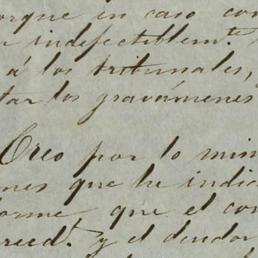 orque en caso con
indefectiblem.te
á los tribunales,
tar los gravámenes
Creo por lo mism
nes que he indic
forme, que el con
creed.r y el deudor